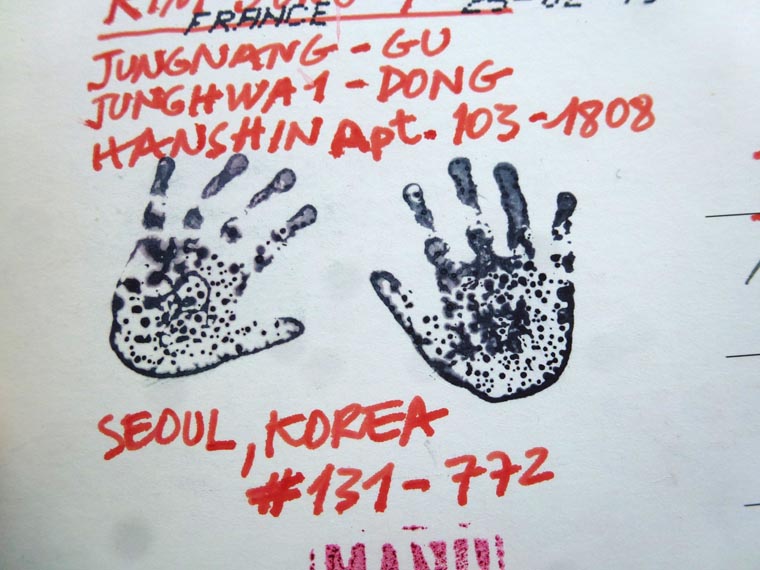 FRANCE
JUNGNANG - GU
JUNGHWA 1 - DONG
HANSHIN Apt. 103 - 1808
SEOUL, KOREA
#131 - 772